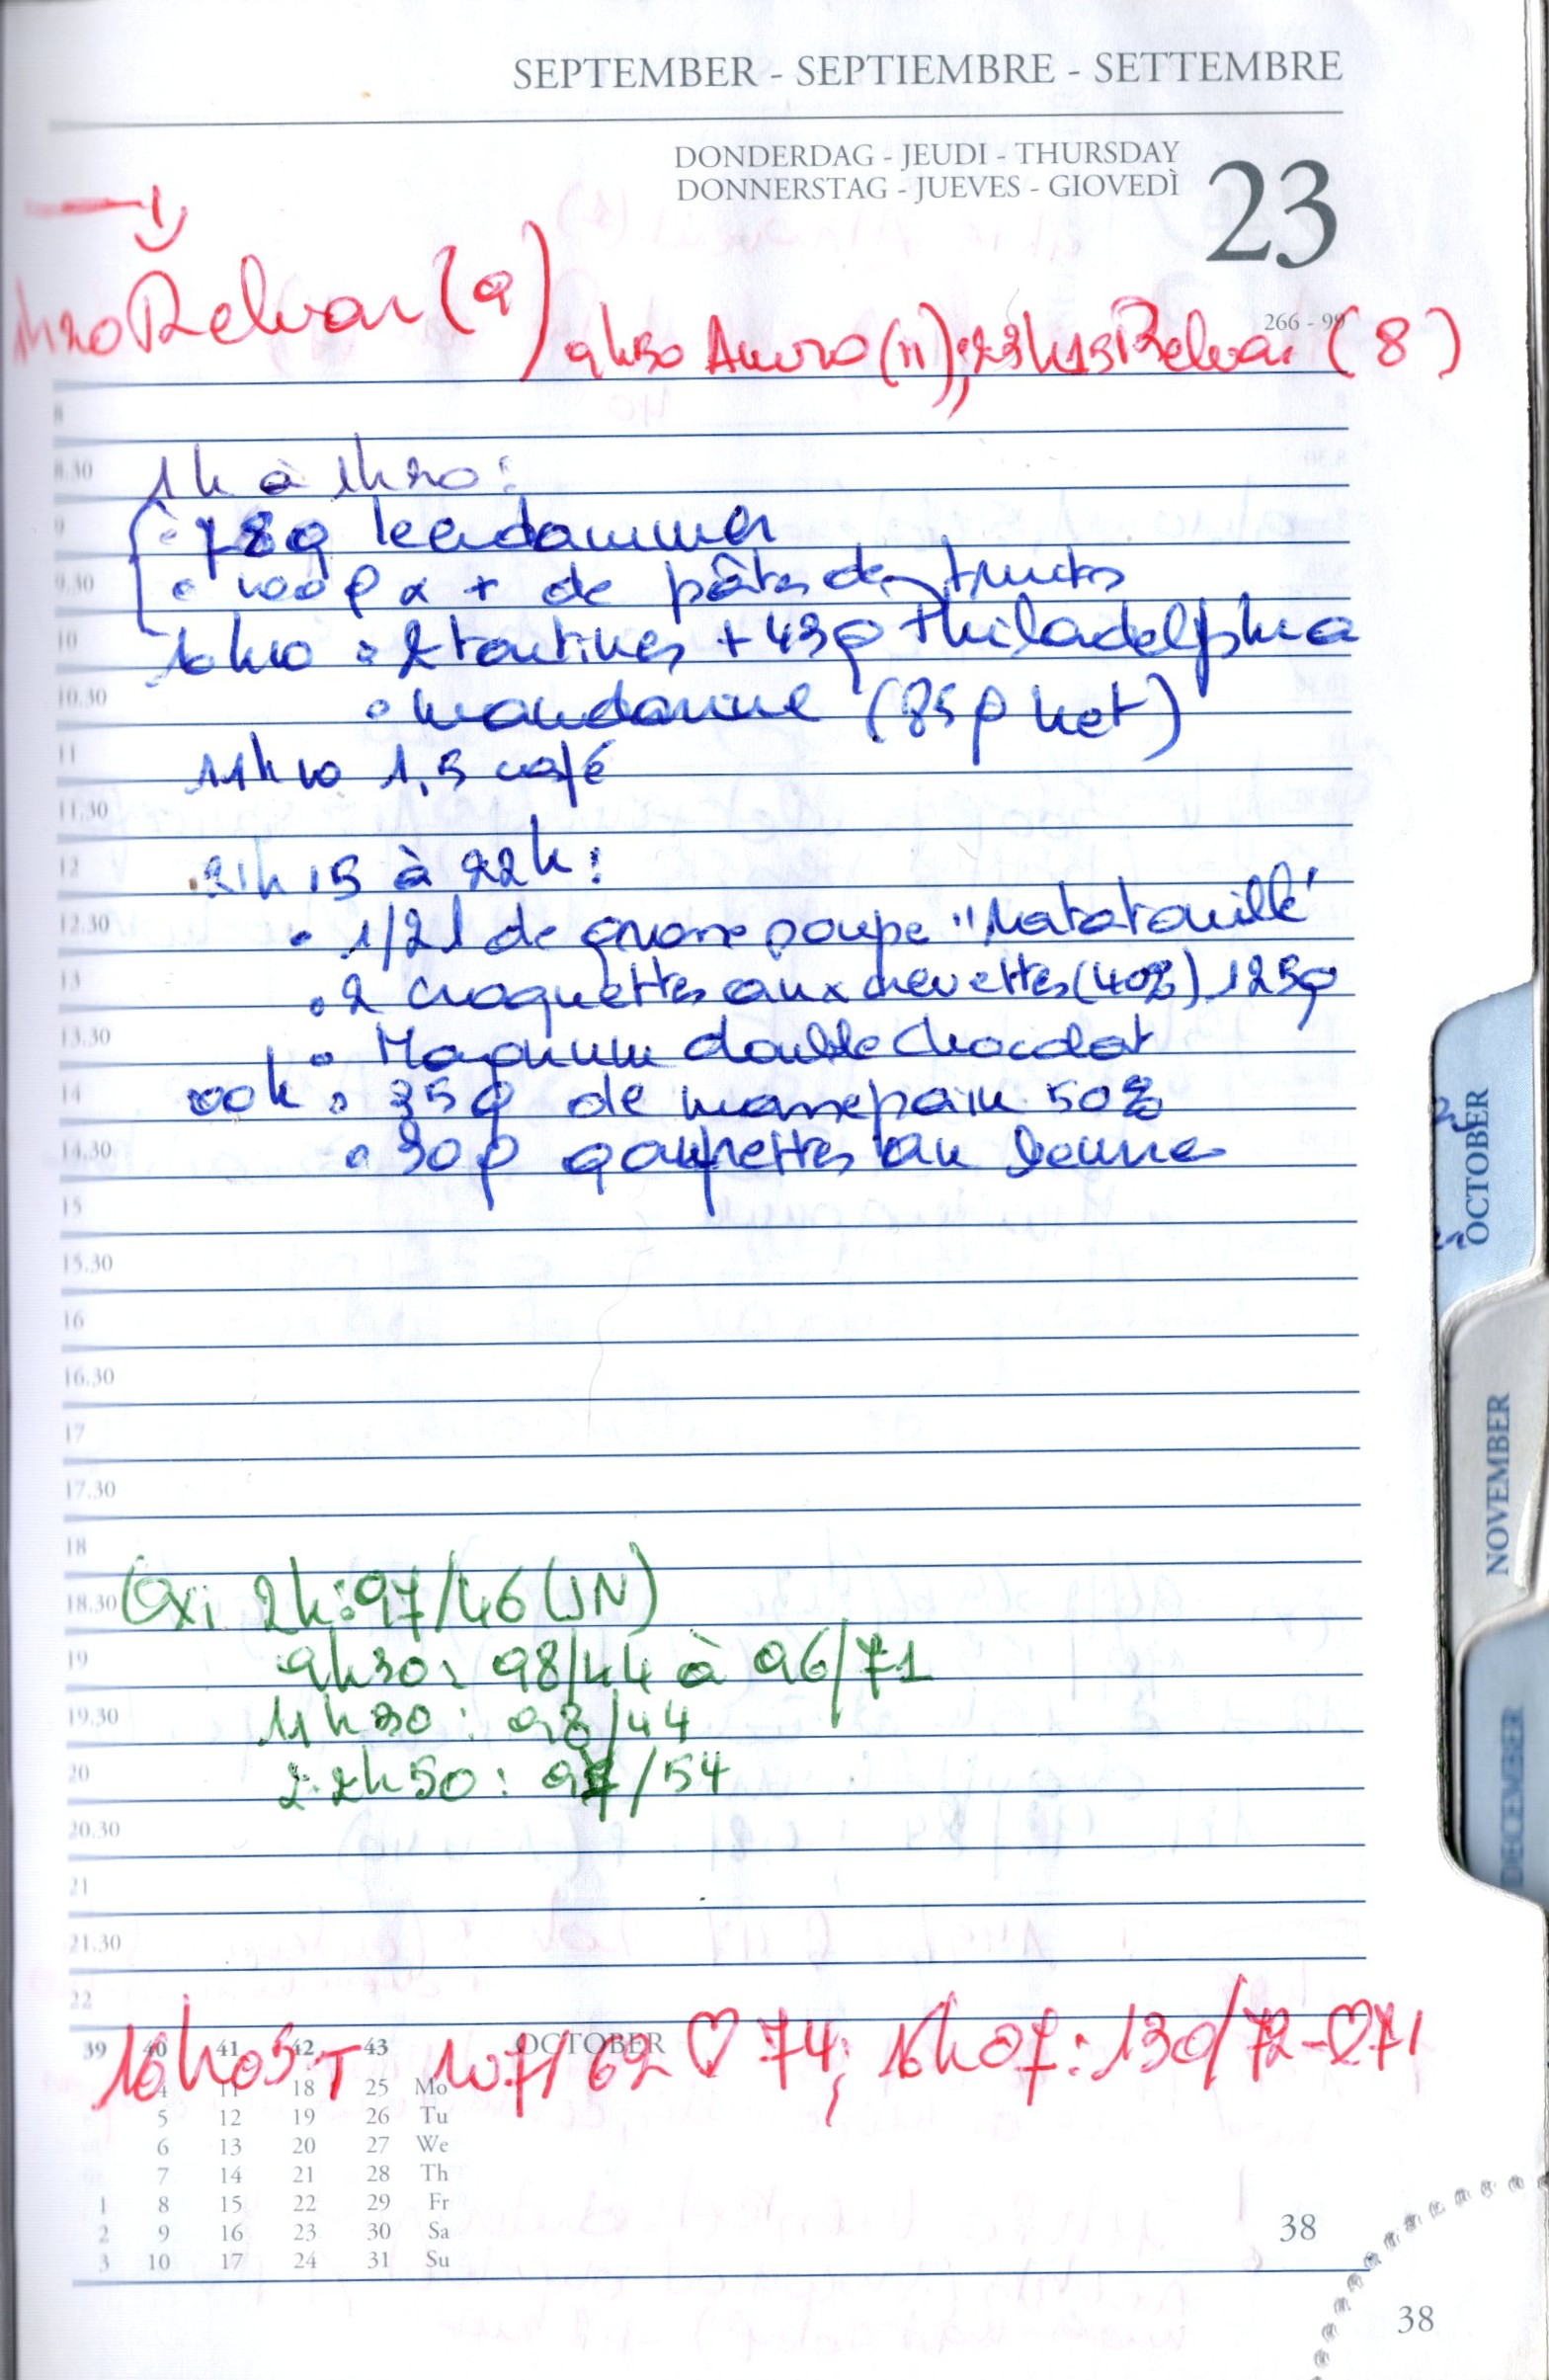 SEPTEMBER - SEPTIEMBRE - SETTEMBRE
DONDERDAG - JEUDI - THURSDAY
DONNERSTAG - JUEVES - GIOVEDÌ
23
266 - 99
1h20 Relvar (9)
9h50 Amro (11); 23h15 Relvar (8)
8
8.30 1h à 1h20:
9 • 78g leerdammer
9.30 • 100g & + de pâtes de fruits
10 10h10 • 2 tartines + 43g Philadelphia
10.30 • mandarine (85g net)
11 11h10 1,5 café
11.30
12 21h15 à 22h:
12.30 • 1/2l de grosse soupe "Ratatouille"
13 • 2 croquettes aux crevettes (40%) 125g
13.30 • Magnum double chocolat
14 00h • 35g de massepain 50%
14.30 • 30g gaufrettes au beurre
15
15.30
16
16.30
17
17.30
18
18.30 Oxi 2h: 97/46 (IN)
19 9h30: 98/44 à 96/71
19.30 11h30: 98/44
20 22h50: 97/54
20.30
21
21.30
22
16h05 T 107/62 ♡ 74; 16h07: 130/72 - ♡ 71
39 40 41 42 43 OCTOBER
4 11 18 25 Mo
5 12 19 26 Tu
6 13 20 27 We
7 14 21 28 Th
1 8 15 22 29 Fr
2 9 16 23 30 Sa
3 10 17 24 31 Su
38
38
OCTOBER
NOVEMBER
DECEMBER